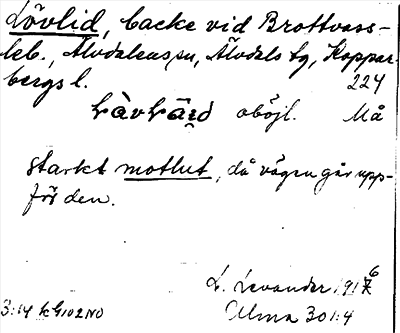 Lövlid, backe vid Brottvass-
leb., Älvdalens sn, Älvdals tg, Koppar-
bergs l. 224
oböjl. Må
starkt motlut, då vägen går upp-
för den.
L. Levander 1916
3:14 Alma 301:4